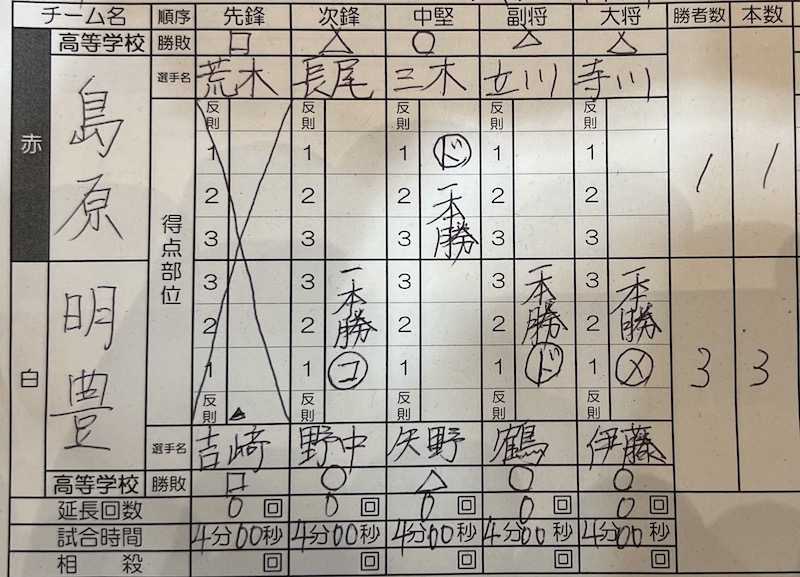 チーム名 順序 先鋒 次鋒 中堅 副将 大将 勝者数 本数
高等学校 勝敗 □ △ ○ △ △
赤 島原 選手名 荒木 長尾 三木 立川 寺川
得点部位 反則 反則 反則 反則 反則
1 1 1 ド 1 1 1 1
2 2 2 一本勝 2 2
3 3 3 3 3
白 明豊 3 3 一本勝 3 3 一本勝 3 一本勝
2 2 2 2 2
1 1 コ 1 1 ド 1 メ 3 3
反則 ▲ 反則 反則 反則 反則
選手名 吉崎 野中 矢野 鶴 伊藤
高等学校 勝敗 □ ○ △ ○ ○
延長回数 0 回 0 回 0 回 0 回 0 回
試合時間 4分00秒 4分00秒 4分00秒 4分00秒 4分00秒
相殺 回 回 回 回 回